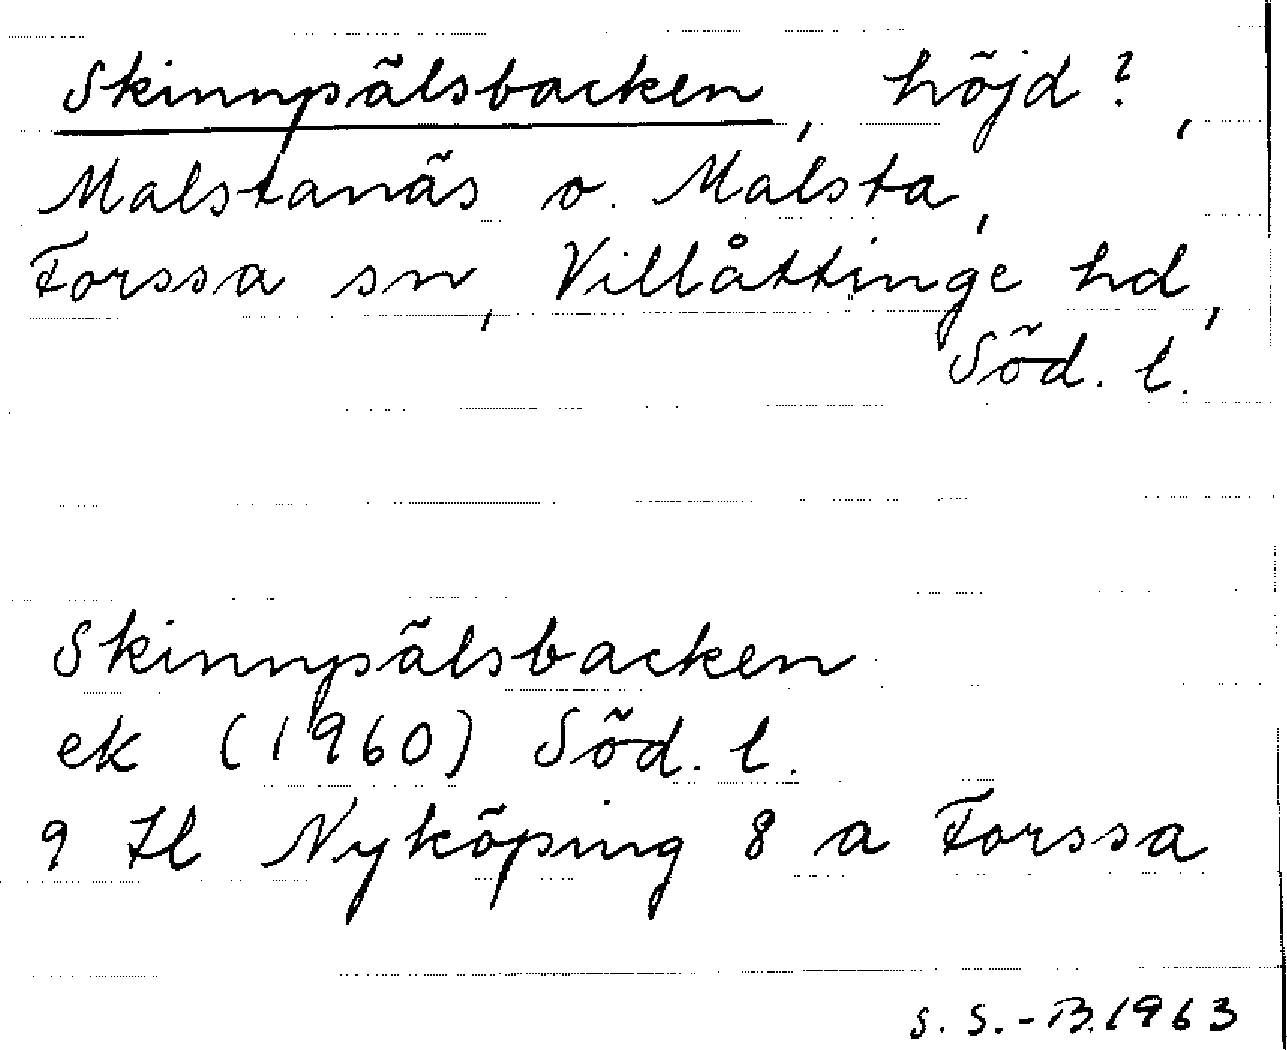 Skinnpälsbacken, höjd?,
Malstanäs o. Malsta,
Forssa sn, Villåttinge hd,
Söd. l.
Skinnpälsbacken
ek (1960) Söd. l.
9 Hl Nyköping 8 a Forssa
S. S.-B. 1963